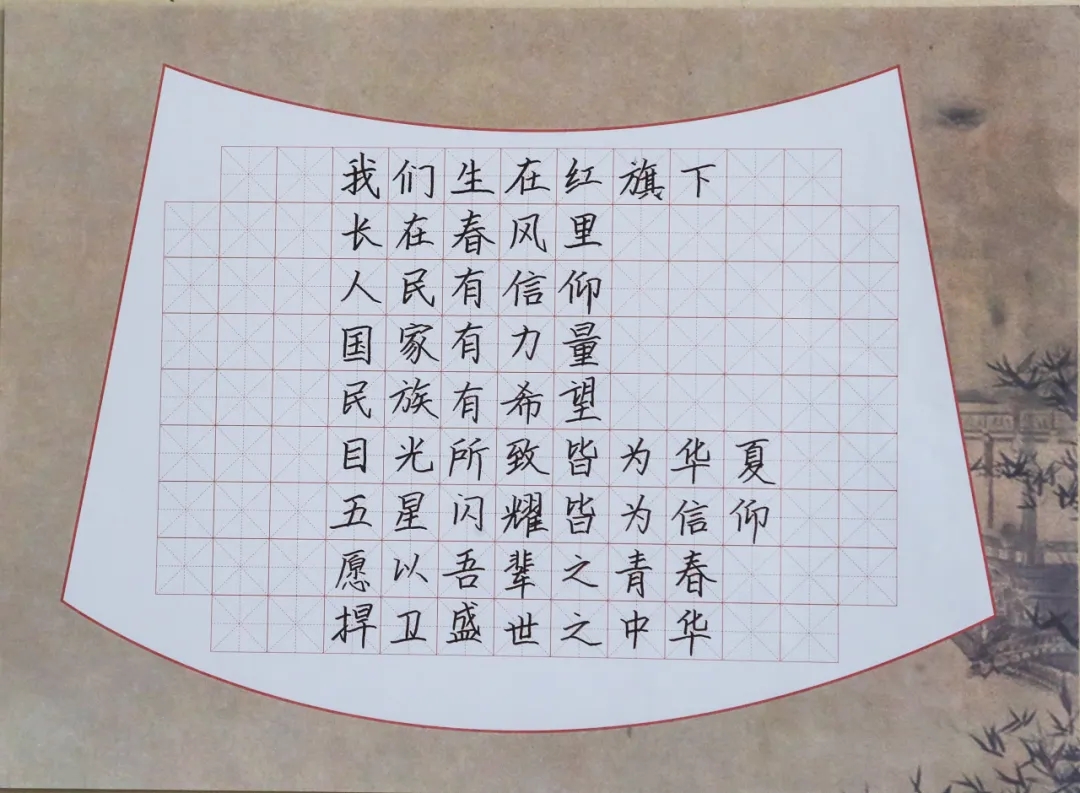 我们生在红旗下
长在春风里
人民有信仰
国家有力量
民族有希望
目光所致皆为华夏
五星闪耀皆为信仰
愿以吾辈之青春
捍卫盛世之中华